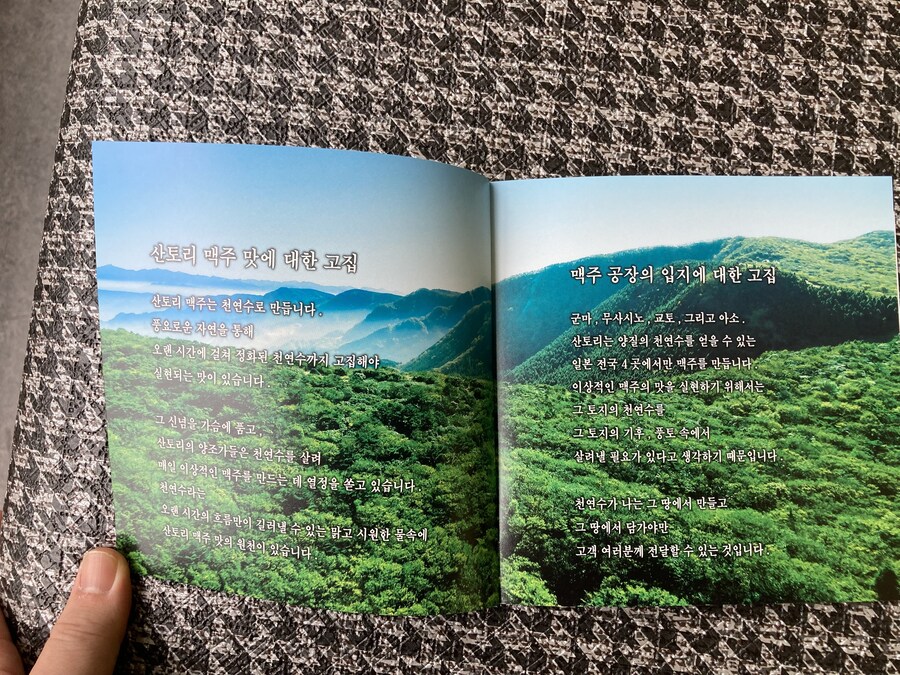 산토리 맥주 맛에 대한 고집
산토리 맥주는 천연수로 만듭니다.
풍요로운 자연을 통해
오랜 시간에 걸쳐 정화된 천연수까지 고집해야
실현되는 맛이 있습니다.
그 신념을 가슴에 품고,
산토리의 양조가들은 천연수를 살려
매일 이상적인 맥주를 만드는 데 열정을 쏟고 있습니다.
천연수라는
오랜 시간의 흐름만이 길러낼 수 있는 맑고 시원한 물속에
산토리 맥주 맛의 원천이 있습니다.
맥주 공장의 입지에 대한 고집
군마, 무사시노, 교토, 그리고 아소.
산토리는 양질의 천연수를 얻을 수 있는
일본 전국 4곳에서만 맥주를 만듭니다.
이상적인 맥주의 맛을 실현하기 위해서는
그 토지의 천연수를
그 토지의 기후, 풍토 속에서
살려낼 필요가 있다고 생각하기 때문입니다.
천연수가 나는 그 땅에서 만들고
그 땅에서 담가야만
고객 여러분께 전달할 수 있는 것입니다.